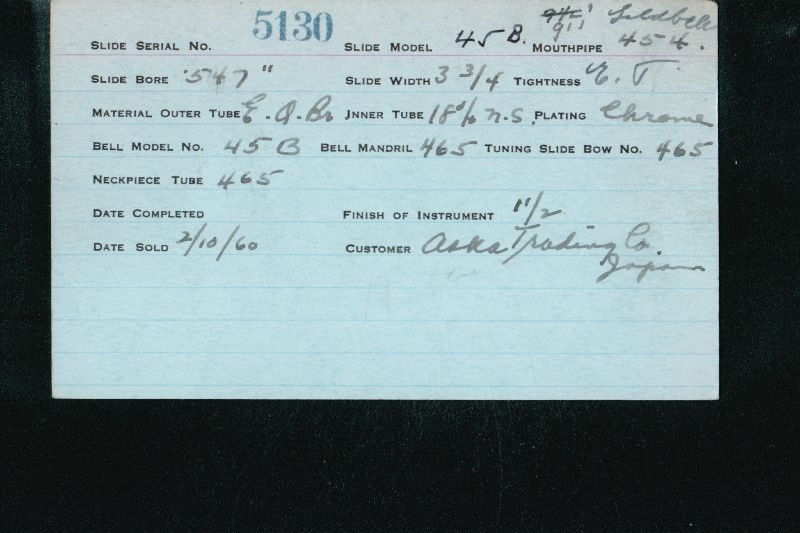 9" Goldbell
SLIDE SERIAL NO. 5130 SLIDE MODEL 45 B. MOUTHPIPE 454.
SLIDE BORE .547" SLIDE WIDTH 3 3/4 TIGHTNESS E. T
MATERIAL OUTER TUBE INNER TUBE 18% N.S. PLATING Chrome
BELL MODEL NO. 45 B BELL MANDRIL 465 TUNING SLIDE BOW NO. 465
NECKPIECE TUBE 465
DATE COMPLETED FINISH OF INSTRUMENT 1 1/2
DATE SOLD 2/10/60 CUSTOMER Aska Trading Co.
Japan